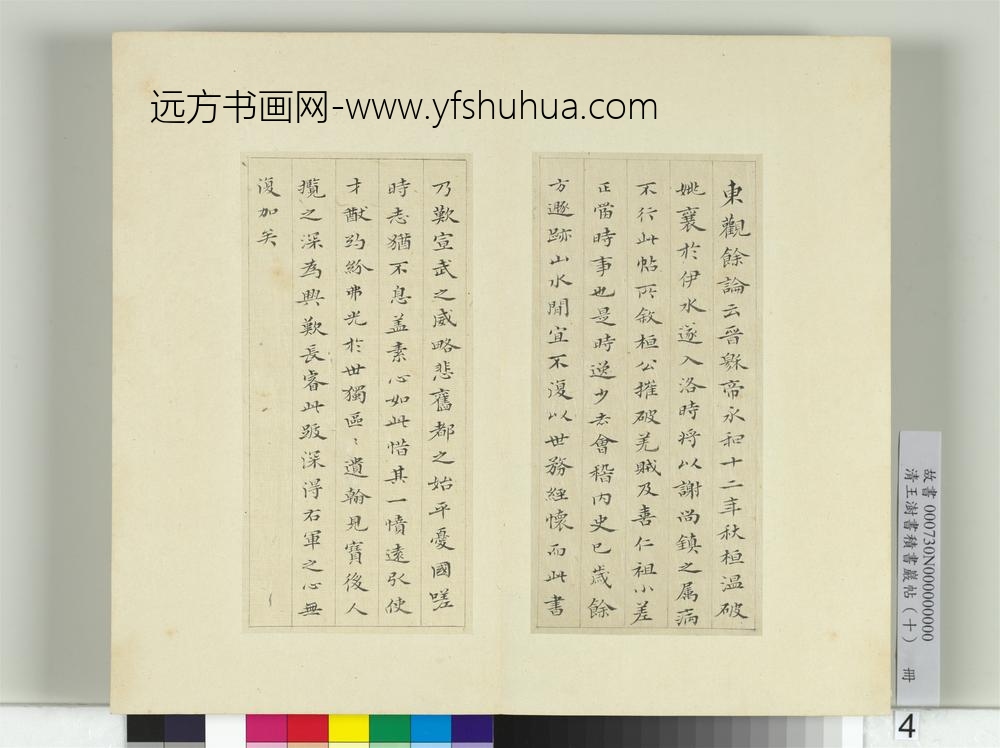 远方书画网-www.yfshuhua.com
東觀餘論云晉穌帝永和十二年秋桓溫破
姚襄於伊水遂入洛時將以謝尚鎮之属病
不行此帖所敘桓公摧破羌賊及喜仁祖小差
正當時事也是時逸少去會稽內史已歲餘
方遯跡山水間宜不復以世務經懷而此書
乃歎宣武之威略悲舊都之始平憂國嗟
時志猶不息盖素心如此惜其一憤遠引使
才猷約紛弗光於世獨區〻遺翰見寶後人
攬之深為興歎長睿此跋深得右軍之心無
復加矣
故書 000730N000000000
清王澍書積書巖帖（十） 冊
4